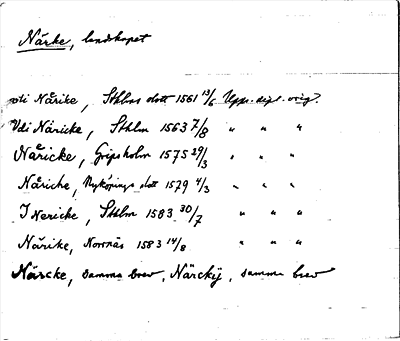 Närke, landskapet
uti Nårike, Sthlms slott 1561 13/6 Upps. dipl. orig.
Vdi Näricke, Sthlm 1563 7/8 " " "
Nåricke, Gripsholm 1575 29/3 " " "
Nåriche, Nyköpings slott 1579 4/3 " " "
I Nericke, Sthlm 1583 30/7 " " "
Närike, Norrnäs 1583 14/8 " " "
Närcke, samma brev, Närckij, samma brev